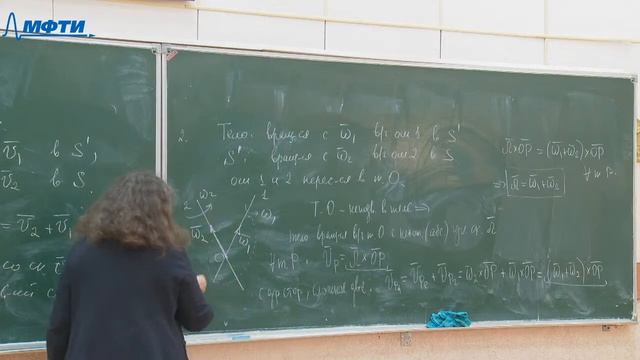 МФТИ
v̄₁ в S',
v̄₂ в S.
= v̄₂ + v̄₁
со ск v̄
2. Тело: вращ-ся с ω̄₁ вкг оси 1 в S'
S': вращ-ся с ω̄₂ вкг оси 2 в S
оси 1 и 2 перес-ся в т. O
2 ω₂ 1
ω̄₂ ω₁ ω̄₁
O
Т. O - неподв. в теле ⇒
тело вращ-ся вкг т. O с некот. (абс) угл. ск. Ω̄
∀ т. P. V̄_P = Ω̄ × OP
с др. стор., сложное движ. V̄_P = V̄_Pe + V̄_Pr = ω̄₂ × OP + ω̄₁ × OP = (ω̄₁ + ω̄₂) × OP
Ω̄ × OP = (ω̄₁ + ω̄₂) × OP
∀ т. P.
⇒ Ω̄ = ω̄₁ + ω̄₂